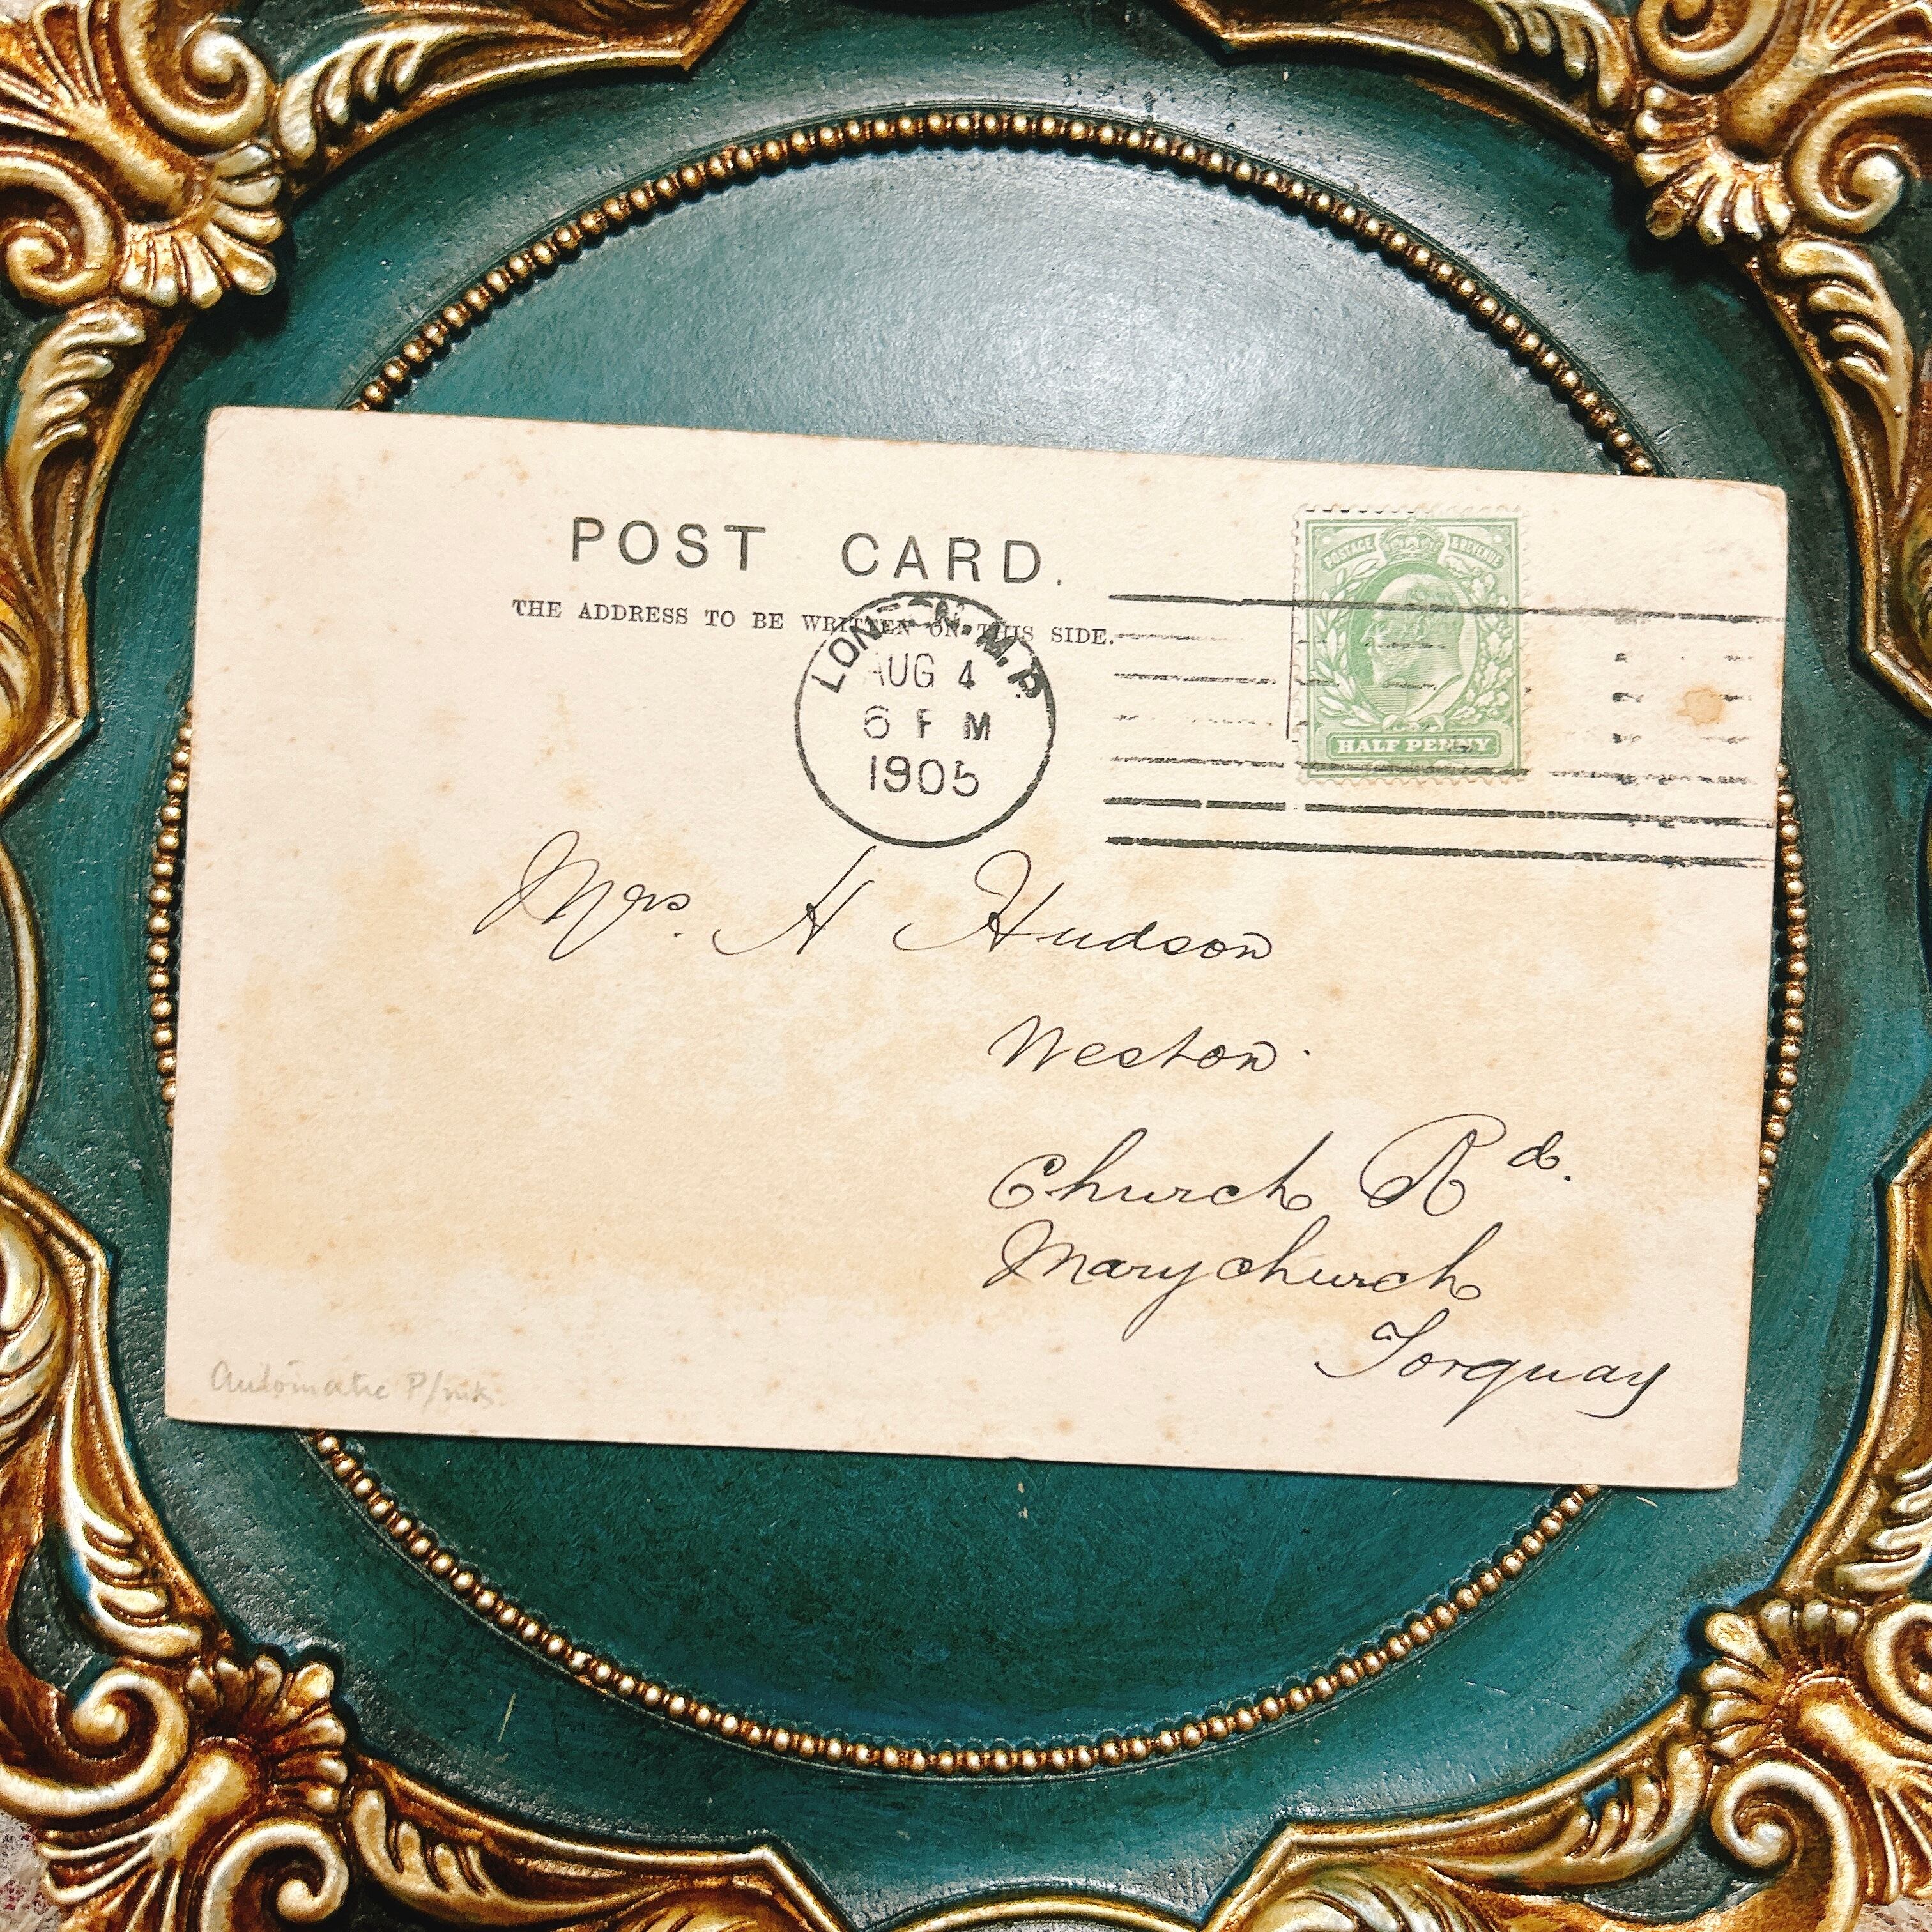 POST CARD.
THE ADDRESS TO BE WRITTEN ON THIS SIDE.
POSTAGE & REVENUE
HALF PENNY
LONDON. M.P.
AUG 4
6 PM
1905
Mrs. H Hudson
Weston.
Church Rd.
Marychurch
Torquay
Automatic P/mk.